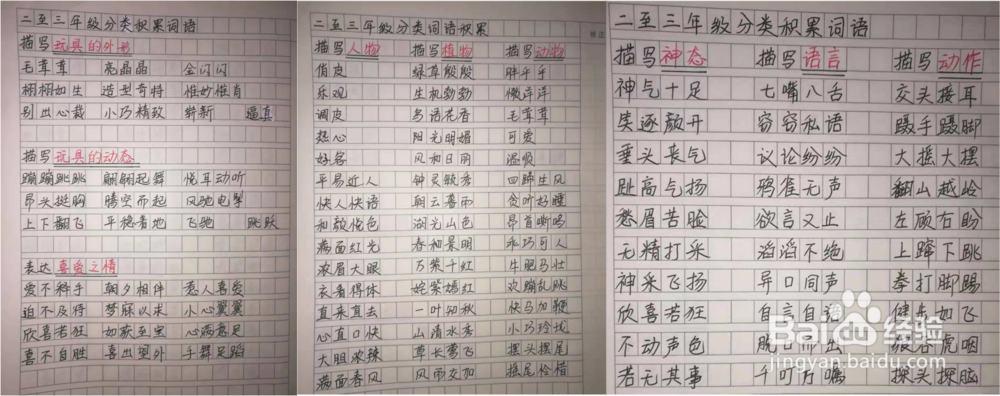 二至三年级分类积累词语
描写玩具的外形
毛茸茸 亮晶晶 金闪闪
栩栩如生 造型奇特 惟妙惟肖
别出心裁 小巧精致 崭新 逼真
描写玩具的动态
蹦蹦跳跳 翩翩起舞 悦耳动听
昂头挺胸 腾空而起 风驰电掣
上下翻飞 平稳着地 飞驰 跳跃
表达喜爱之情
爱不释手 朝夕相伴 惹人喜爱
迫不及待 梦寐以求 小心翼翼
欣喜若狂 如获至宝 心满意足
喜不自胜 喜出望外 手舞足蹈
二至三年级分类词语积累
描写人物 描写植物 描写动物
俏皮 绿草殷殷 胖乎乎
乐观 生机勃勃 懒洋洋
调皮 鸟语花香 毛茸茸
热心 阳光明媚 可爱
好客 风和日丽 温顺
平易近人 钟灵毓秀 四蹄生风
快人快语 朝云暮雨 贪吃好睡
和颜悦色 湖光山色 昂首嘶鸣
满面红光 春和景明 乖巧可人
浓眉大眼 万紫千红 牛肥马壮
衣着得体 姹紫嫣红 欢蹦乱跳
直来直去 一叶知秋 快马加鞭
心直口快 山清水秀 小巧玲珑
大胆泼辣 草长莺飞 摇头摆尾
满面春风 风雨交加 摇尾怜惜
二至三年级分类积累词语
描写神态 描写语言 描写动作
神气十足 七嘴八舌 交头接耳
笑逐颜开 窃窃私语 蹑手蹑脚
垂头丧气 议论纷纷 大摇大摆
趾高气扬 鸦雀无声 翻山越岭
愁眉苦脸 欲言又止 左顾右盼
无精打采 滔滔不绝 上蹿下跳
神采飞扬 异口同声 拳打脚踢
欣喜若狂 自言自语 健步如飞
不动声色 脱口而出 狼吞虎咽
若无其事 千叮万嘱 探头探脑
Baidu 经验
jingyan.baidu.com